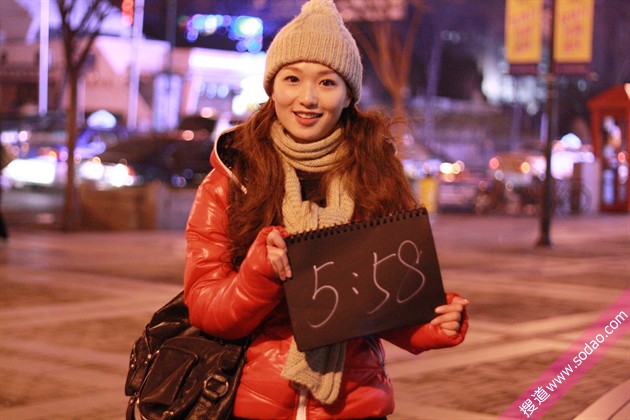 5:58
搜道 www.sodao.com